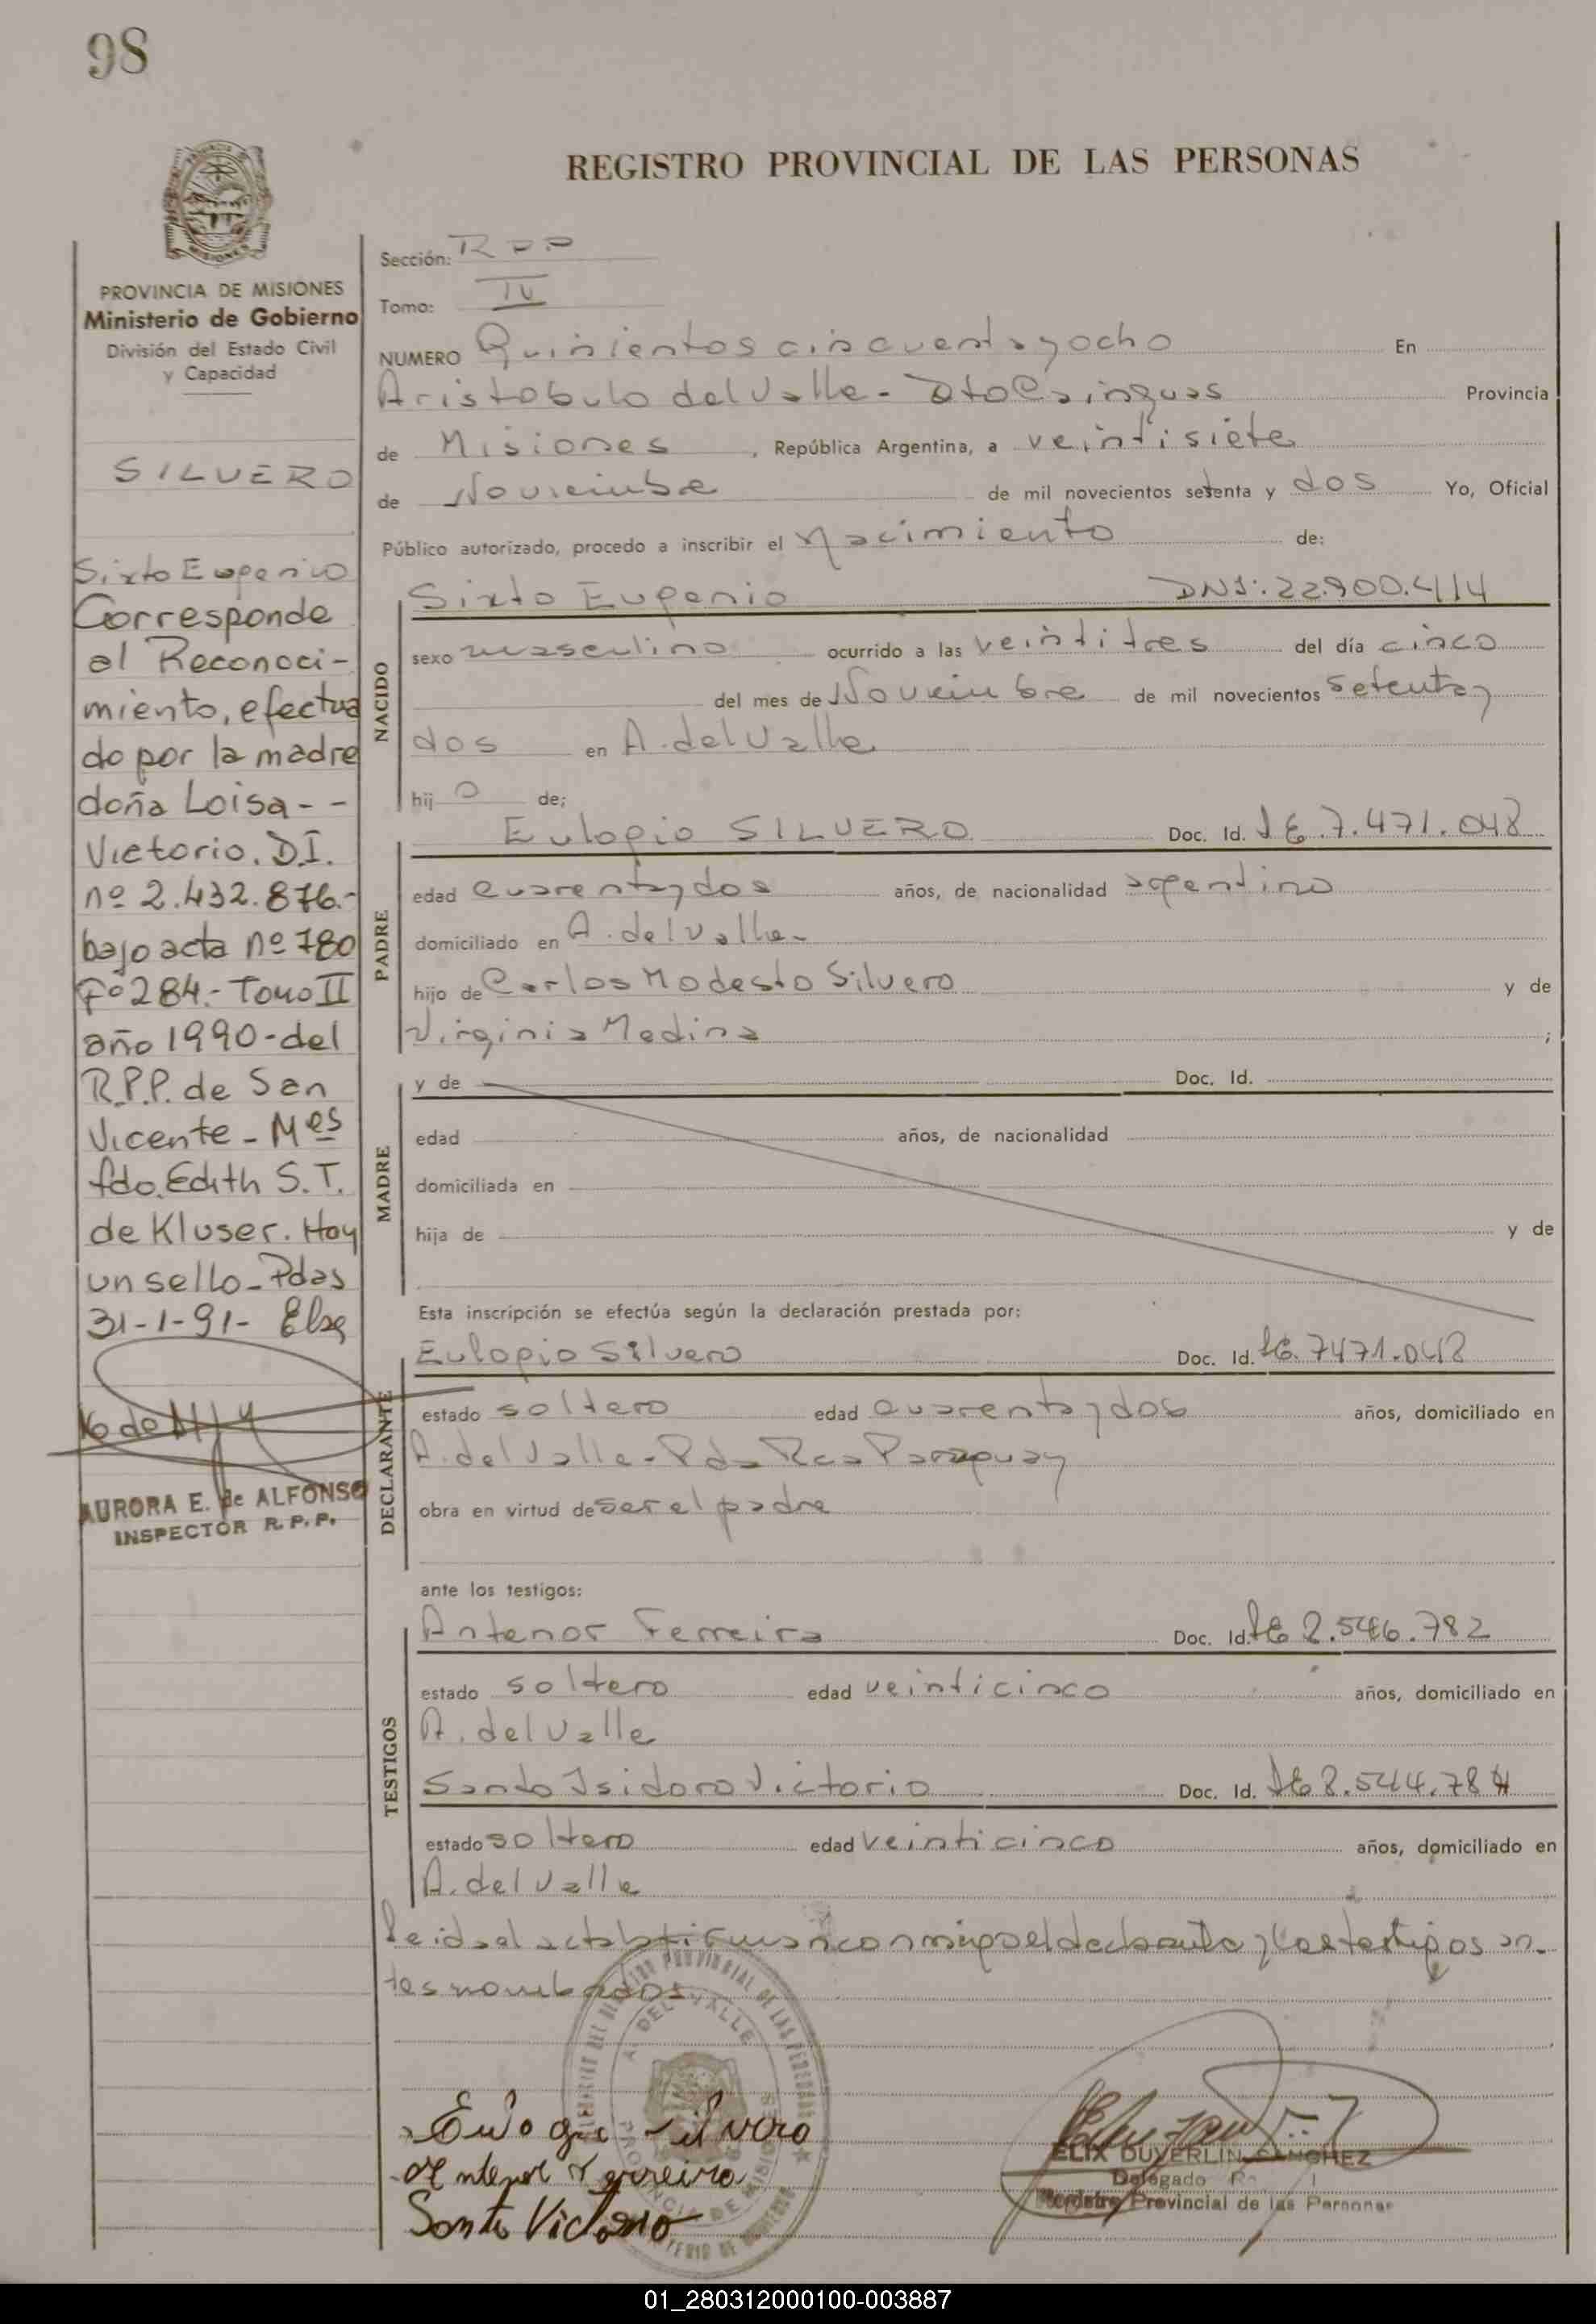 98
REGISTRO PROVINCIAL DE LAS PERSONAS
PROVINCIA DE MISIONES
Ministerio de Gobierno
División del Estado Civil
y Capacidad
SILVERO
Sixto Eugenio
Corresponde
al Reconoci-
miento, efectua
do por la madre
doña Loisa - -
Victorio. D.I.
nº 2.432.876.-
bajo acta nº 780
Fº 284.- Tomo II
año 1990 - del
R.P.P. de San
Vicente - Mes
fdo. Edith S. T.
de Kluser. Hay
un sello - Pdas
31-1-91-
AURORA E. de ALFONSO
INSPECTOR R. P. P.
Sección: R P P
Tomo: IV
NUMERO Quinientos cincuenta y ocho En
Aristobulo del Valle - Dto Cainguas Provincia
de Misiones, República Argentina, a veintisiete
de Noviembre de mil novecientos setenta y dos Yo, Oficial
Público autorizado, procedo a inscribir el Nacimiento de:
NACIDO
Sixto Eugenio DNI: 22.900.414
sexo masculino ocurrido a las veintitres del día cinco
del mes de Noviembre de mil novecientos setenta y
dos en A. del Valle
hij o de;
PADRE
Eulogio SILVERO Doc. Id. LE. 7.471.048
edad cuarenta y dos años, de nacionalidad argentino
domiciliado en A. del Valle-
hijo de Carlos Modesto Silvero y de
Virginia Medina ;
MADRE
y de Doc. Id.
edad años, de nacionalidad
domiciliada en
hija de y de
Esta inscripción se efectúa según la declaración prestada por:
DECLARANTE
Eulogio Silvero Doc. Id. LE. 7471.048
estado soltero edad cuarenta y dos años, domiciliado en
A. del Valle - Pda Rca Paraguay
obra en virtud de ser el padre
ante los testigos:
TESTIGOS
Antenor Ferreira Doc. Id. LE 8.546.782
estado soltero edad veinticinco años, domiciliado en
A. del Valle
Santo Isidoro Victorio Doc. Id. LE 8.544.784
estado soltero edad veinticinco años, domiciliado en
A. del Valle
Leida el acta la firman conmigo el declarante y los testigos an-
tes nombrados
Eulogio Silvero
Antenor Ferreira
Santo Victorio
ELIX DUVERLIN SANCHEZ
Delegado
Registro Provincial de las Personas
A. DEL VALLE
PROVINCIA DE MISIONES
01_280312000100-003887